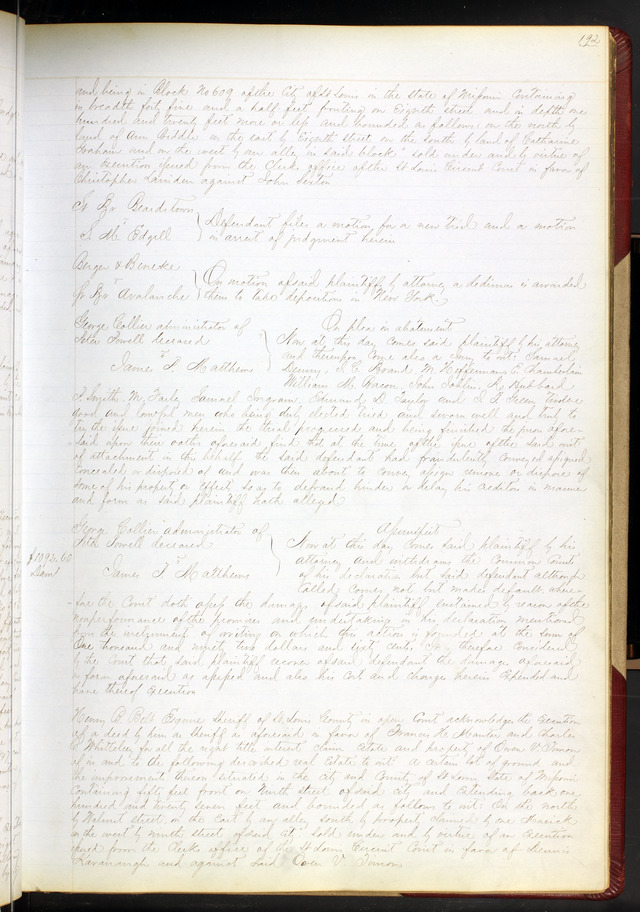 192
and being in Block No 609 of the City of St Louis in the State of Missouri Containing
in breadth forty five and a half feet fronting on Eighth street and in depth one
hundred and twenty feet more or less and bounded as follows on the north by
land of Ann Biddle on the east by Eighth street on the south by land of Catharine
Graham and on the west by an alley in said block" sold under and by virtue of
an execution issued from the Clerks office of the St Louis Circuit Court in favor of
Christopher against John Sexton
St Bt Beardstown
vs
S. M. Edgell
Defendant files a motion for a new trial and a motion
in arrest of judgment herein
Berger & Beneske
vs
St Bt Avalanche
On motion of said plaintiffs by attorney a dedimus is awarded
them to take deposition in New York
George Collier administrator of
Peter Powell deceased
vs
James T Matthews
On plea in abatement
Now at this day comes said plaintiff by his attorney
and thereupon Come also a jury to wit: Samuel
Denny, J. C. Brand, M. Heffernans E Chamberlain
William M. Bacon, John Joblin, R. Hubbard
J. Smith, M. Farley, Samuel Ingram, Edmund D. Taylor and J. S. Green Twelve
good and lawful men who being duly elected tried and sworn well and truly to
try the issue joined herein the trial progressed and being finished the jurors afore-
said upon their oaths aforesaid find that at the time of the issue of the said writ
of attachment in this behalf the said defendant had fraudulently conveyed assigned
concealed or disposed of and was then about to convey assign remove or dispose of
some of his property or Effects so as to defraud hinder or delay his creditors in manner
and form as said plaintiff hath alleged
George Collier administrator of
Peter Powell deceased
vs
James T Matthews
$1092.60
Dam
Assumpsit
Now at this day comes said plaintiff by his
attorney and withdraws the common Counts
of his declaration but said defendant although
Called comes not but makes default where-
fore the Court doth assess the damages of said plaintiff sustained by reason of the
nonperformance of the promises and undertaking in his declaration mentioned
from the instrument of writing on which this action is founded at the sum of
One thousand and ninety two dollars and sixty cents. It is therefore Considered
by the Court that said plaintiff recover of said defendant the damages aforesaid
in form aforesaid as assessed and also his Costs and Charges herein Expended and
have thereof Execution
Henry B. Belt Esquire Sheriff of St Louis County in open Court acknowledges the Execution
of a deed by him as Sheriff as aforesaid in favor of Frances H. Manter and Charles
C. Whittelsey for all the right title interest claim estate and property of Owen V. Timon
of in and to the following described real Estate to wit: "A certain lot of ground and
the improvements thereon situated in the City and County of St Louis State of Missouri
Containing fifty feet front on Ninth street of said City and extending back one
hundred and twenty seven feet and bounded as follows to wit: On the north
by Walnut street on the East by an alley, south by property claimed by one Messick
on the west by ninth street of said City" sold under and by virtue of an Execution
issued from the Clerks office of the St Louis Circuit Court in favor of Dennis
Kavanaugh and against said Owen V. Timon